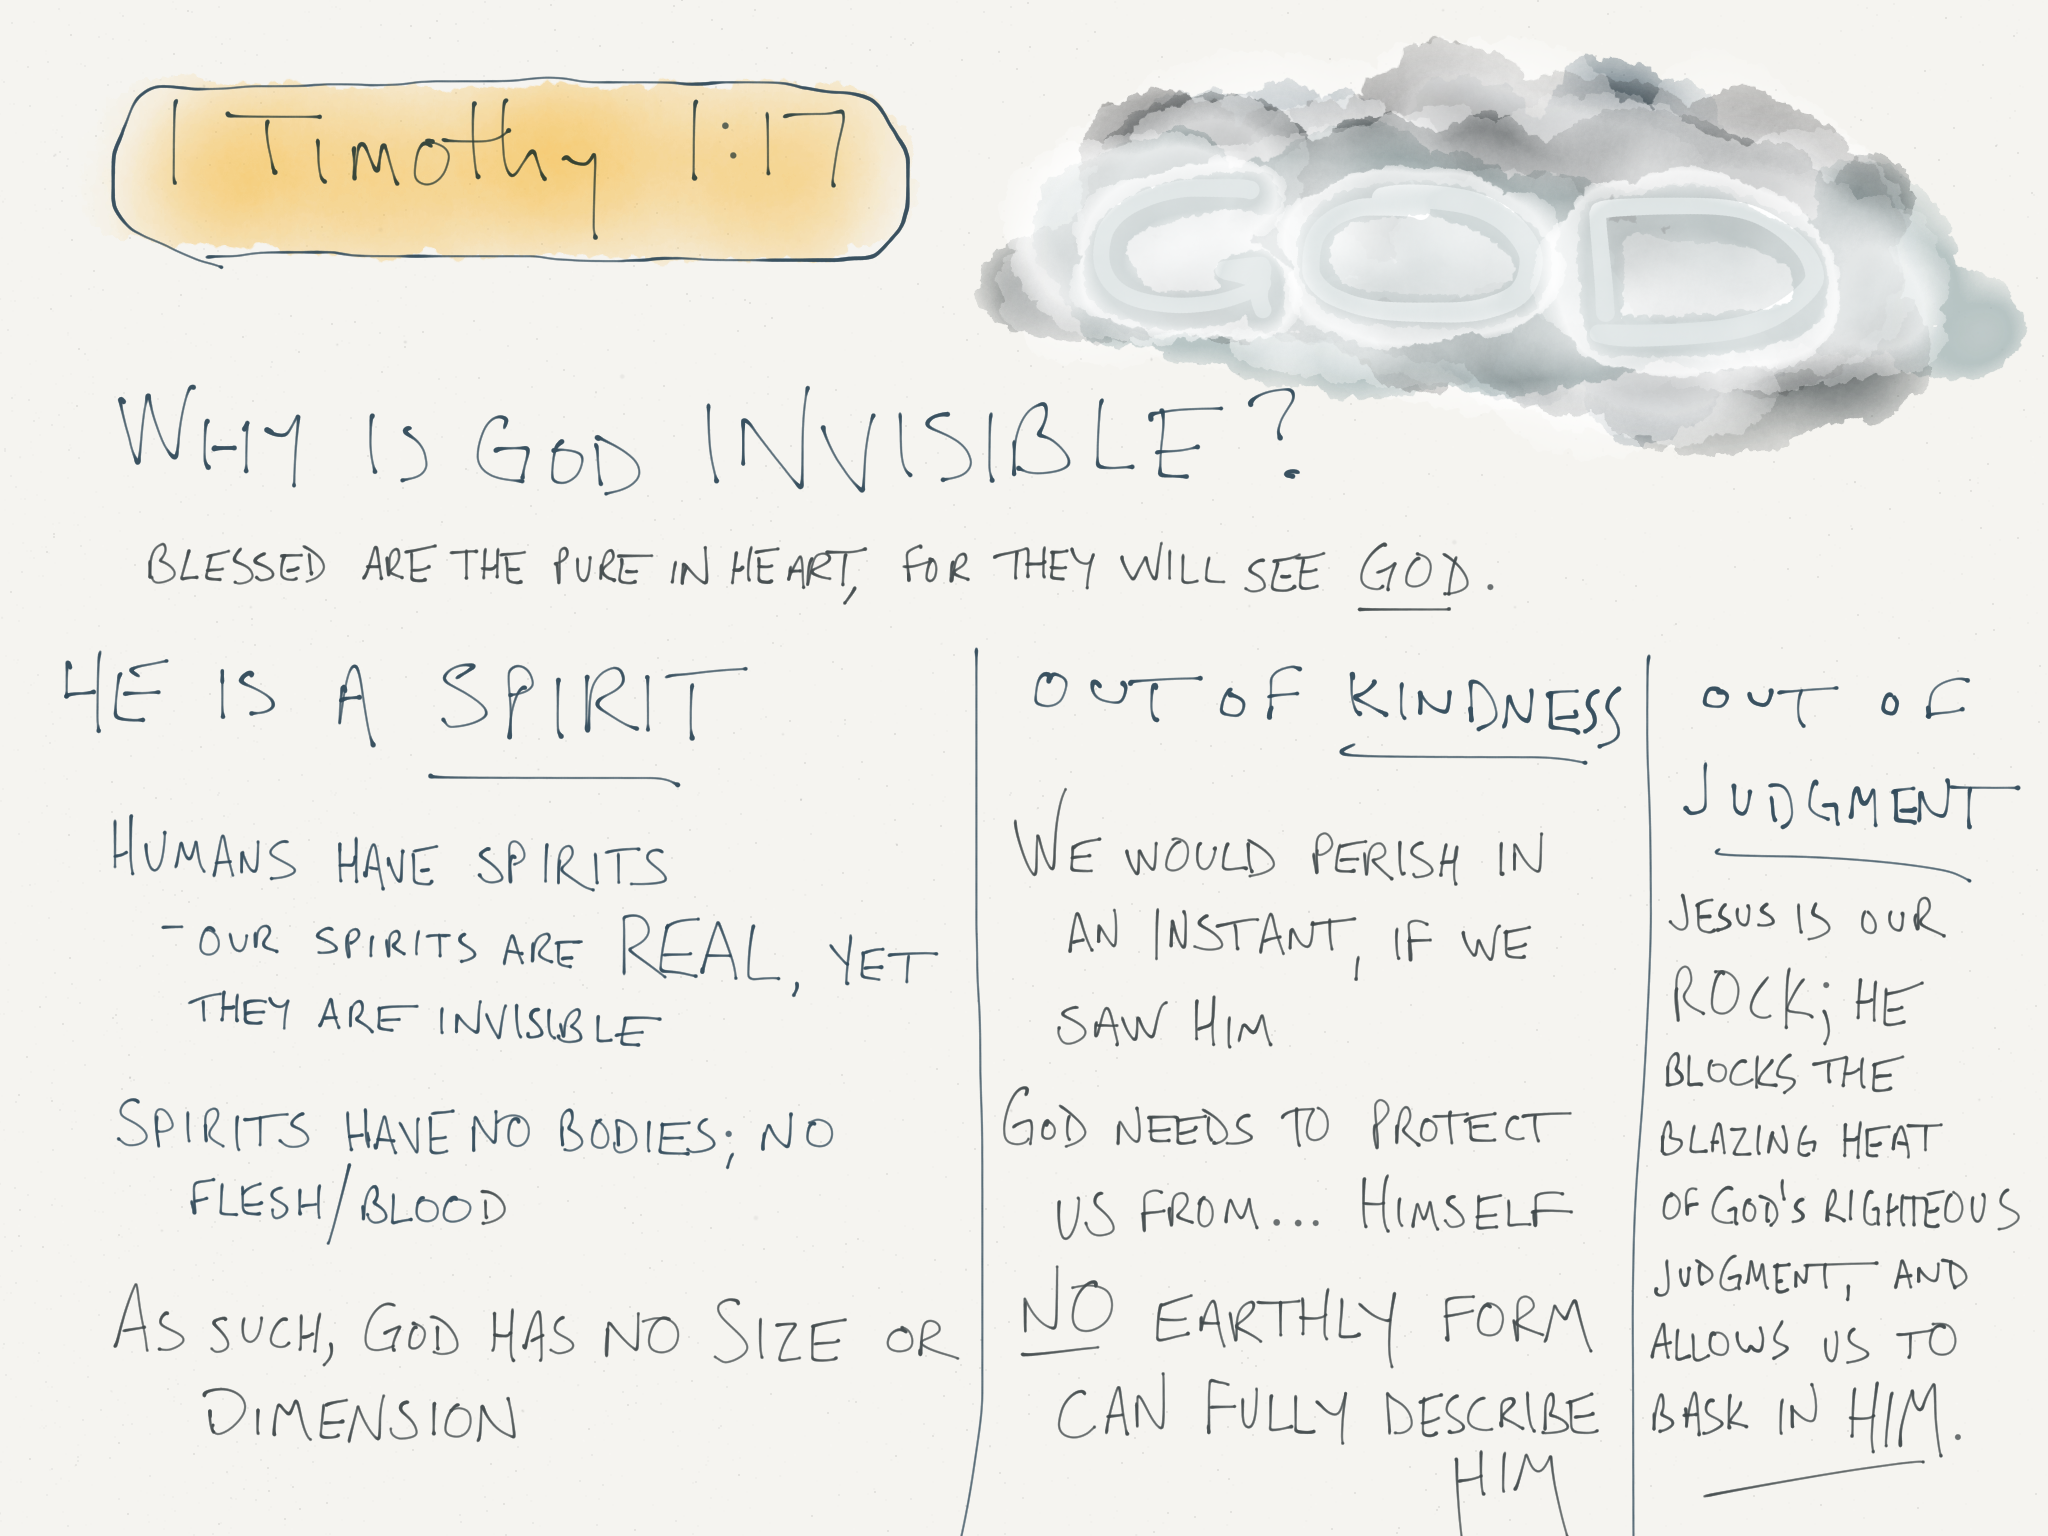 1 Timothy 1:17
GOD
WHY IS GOD INVISIBLE?
BLESSED ARE THE PURE IN HEART, FOR THEY WILL SEE GOD.
HE IS A SPIRIT
HUMANS HAVE SPIRITS
- OUR SPIRITS ARE REAL, YET
THEY ARE INVISIBLE
SPIRITS HAVE NO BODIES; NO
FLESH/BLOOD
AS SUCH, GOD HAS NO SIZE OR
DIMENSION
OUT OF KINDNESS
WE WOULD PERISH IN
AN INSTANT, IF WE
SAW HIM
GOD NEEDS TO PROTECT
US FROM... HIMSELF
NO EARTHLY FORM
CAN FULLY DESCRIBE
HIM
OUT OF
JUDGMENT
JESUS IS OUR
ROCK; HE
BLOCKS THE
BLAZING HEAT
OF GOD'S RIGHTEOUS
JUDGMENT, AND
ALLOWS US TO
BASK IN HIM.